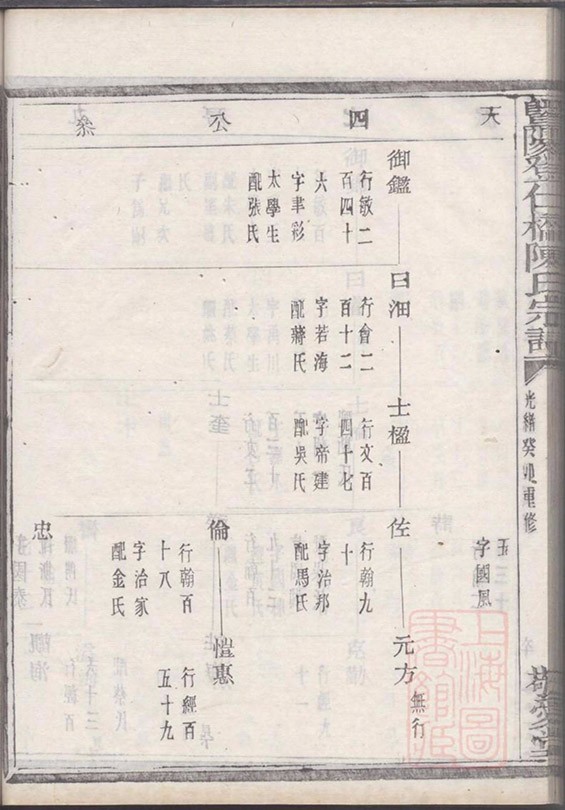 暨陽登仕橋陳氏宗譜
光緒癸卯重修
大四公叅
五三十
字國風
御鑑
行敏二百四十六
字聿彩
太學生
配張氏
曰沺
行會二百十二
字若海
配蔣氏
士楹
行文百四十七
字帝建
配吳氏
佐
行翰九十
字治邦
配馬氏
元方
無行
倫
行翰百十八
字治家
配金氏
愷惠
行經百五十九
忠
上海圖書館藏